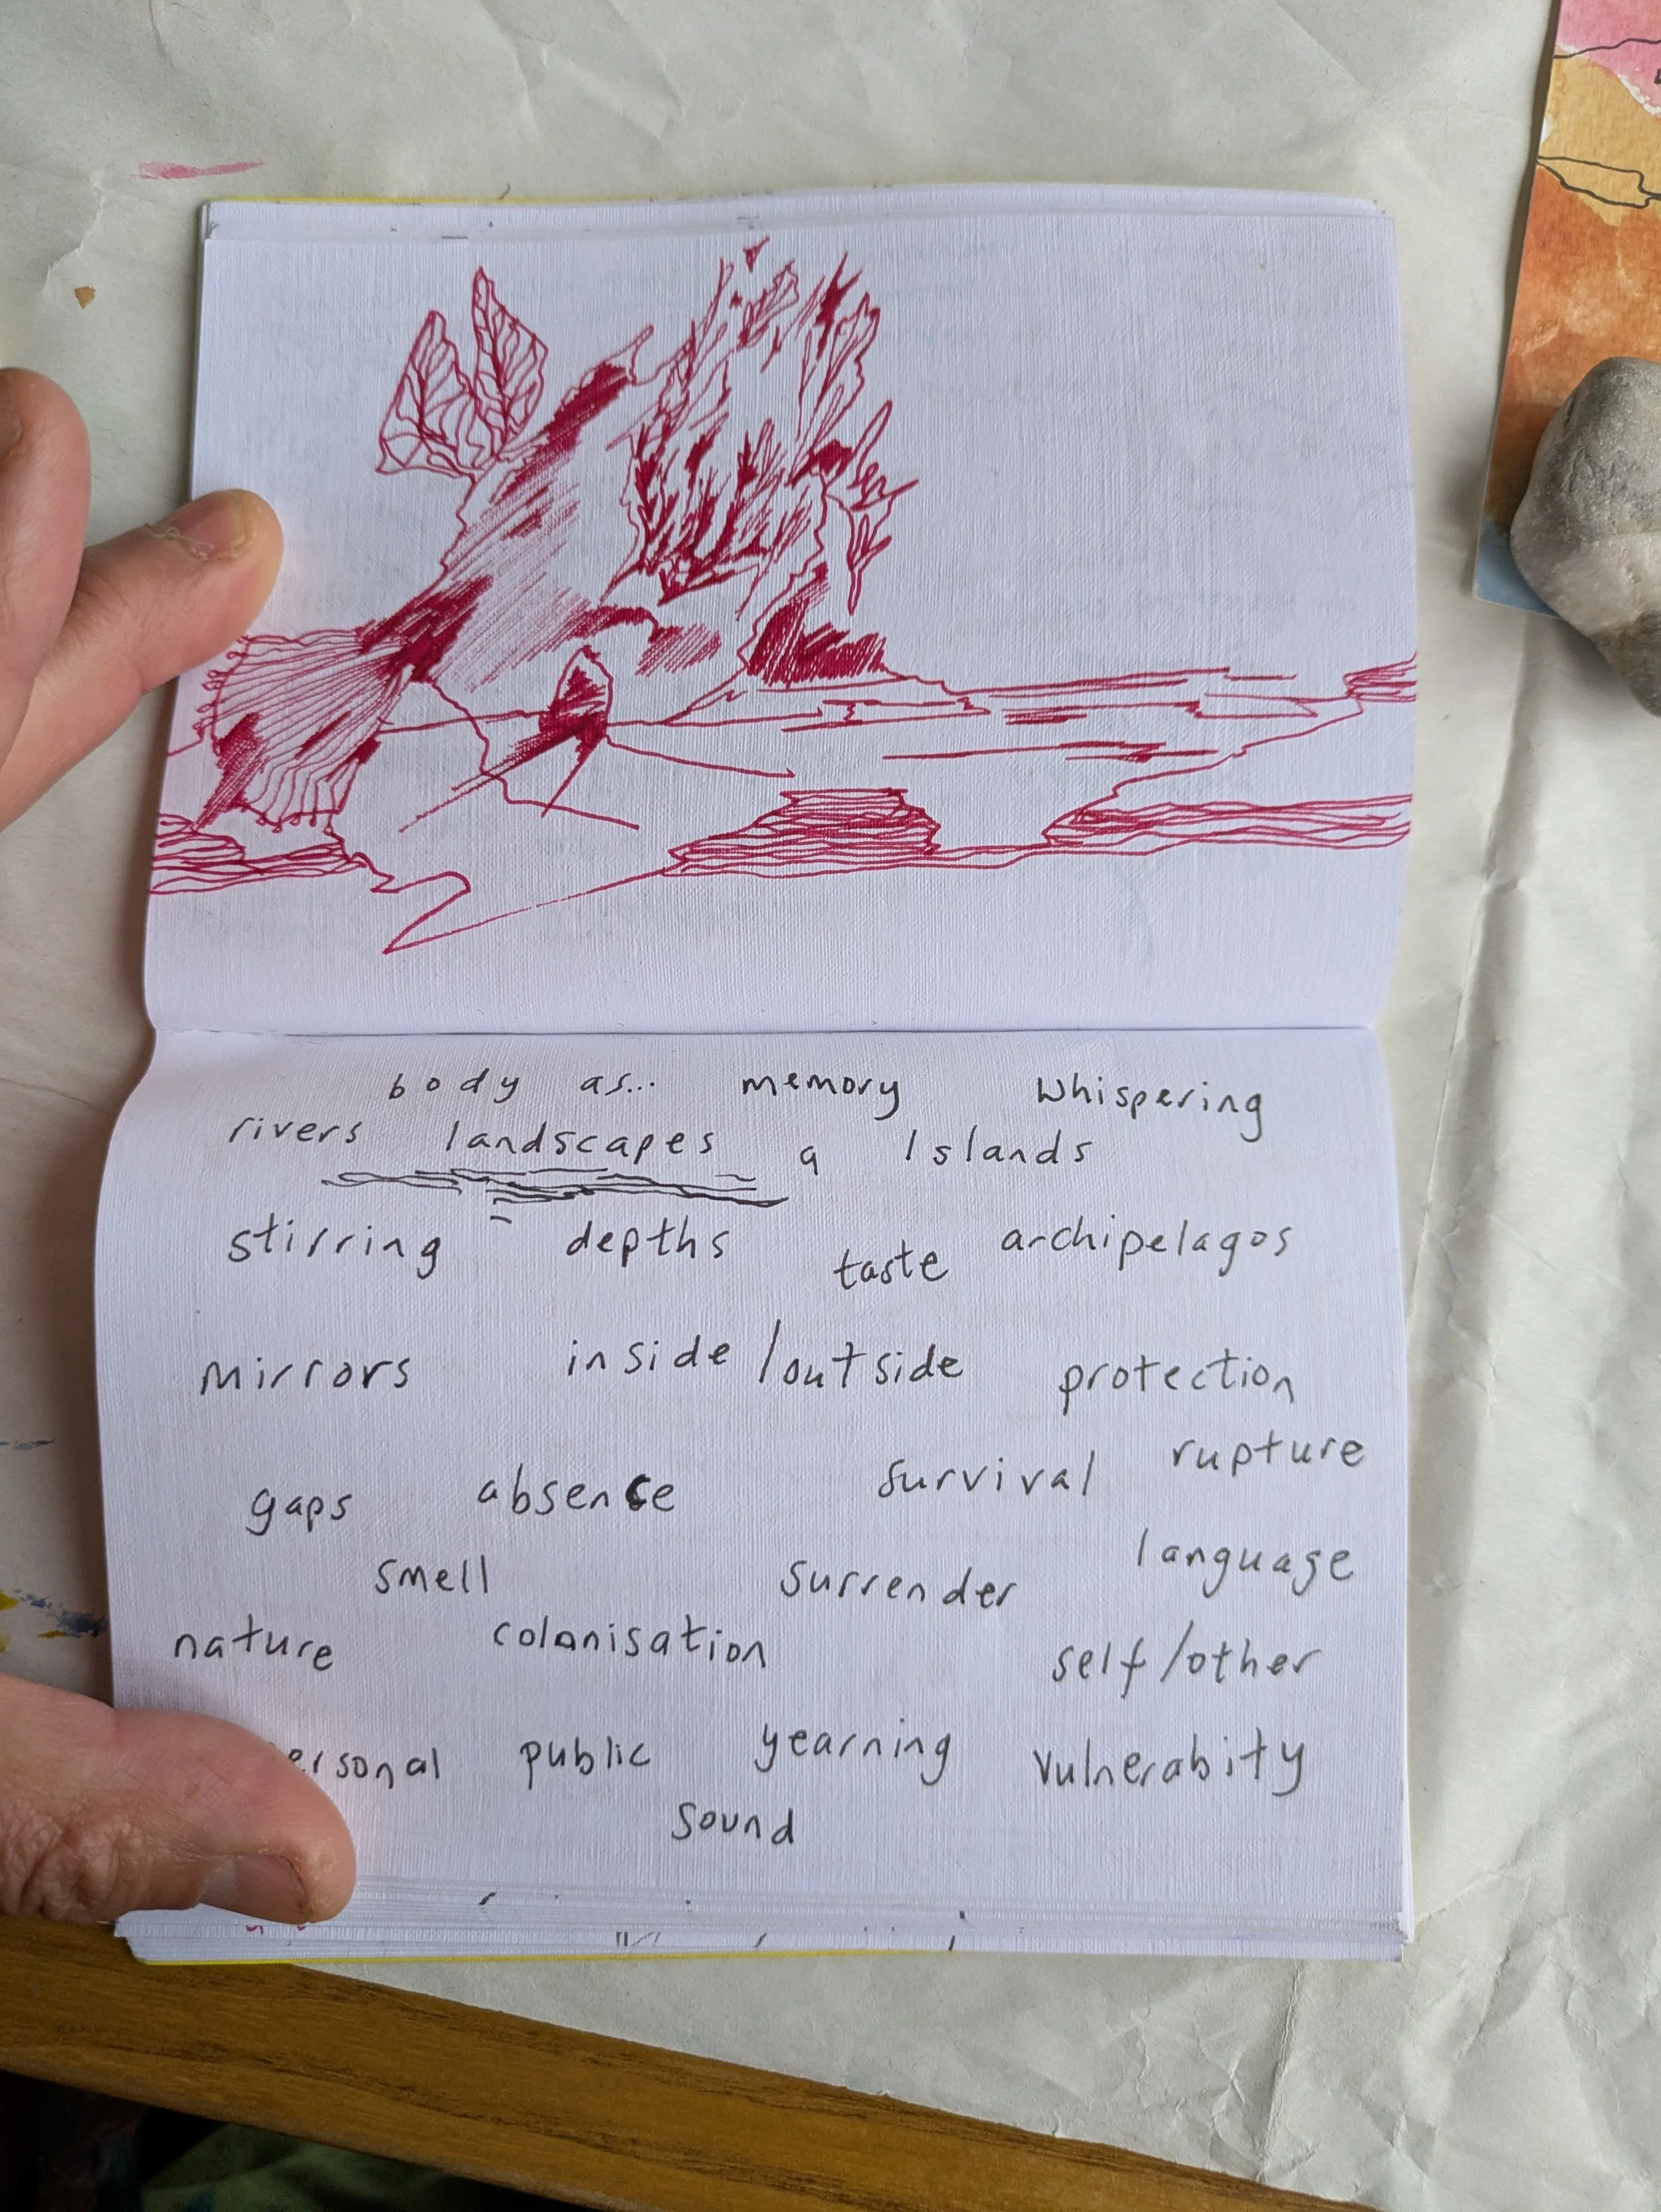 body as... memory Whispering
rivers landscapes a Islands
stirring depths taste archipelagos
mirrors inside/outside protection
gaps absence survival rupture
smell surrender language
nature colonisation self/other
ersonal public yearning vulnerabity
sound